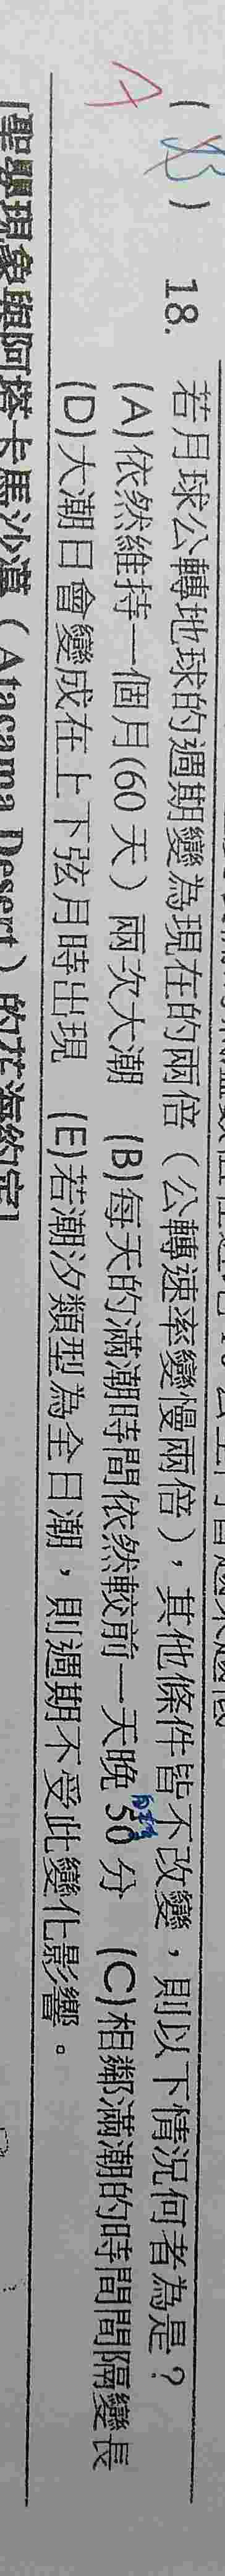 A
( B ) 18. 若月球公轉地球的週期變為現在的兩倍（公轉速率變慢兩倍），其他條件皆不改變，則以下情況何者為是？
(A)依然維持一個月(60 天）兩次大潮 (B)每天的滿潮時間依然較前一天晚 50 分 (C)相鄰滿潮的時間間隔變長
(D)大潮日會變成在上下弦月時出現 (E)若潮汐類型為全日潮，則週期不受此變化影響。
[聖嬰現象與阿塔卡馬沙漠（Atacama Desert）的花海約定]